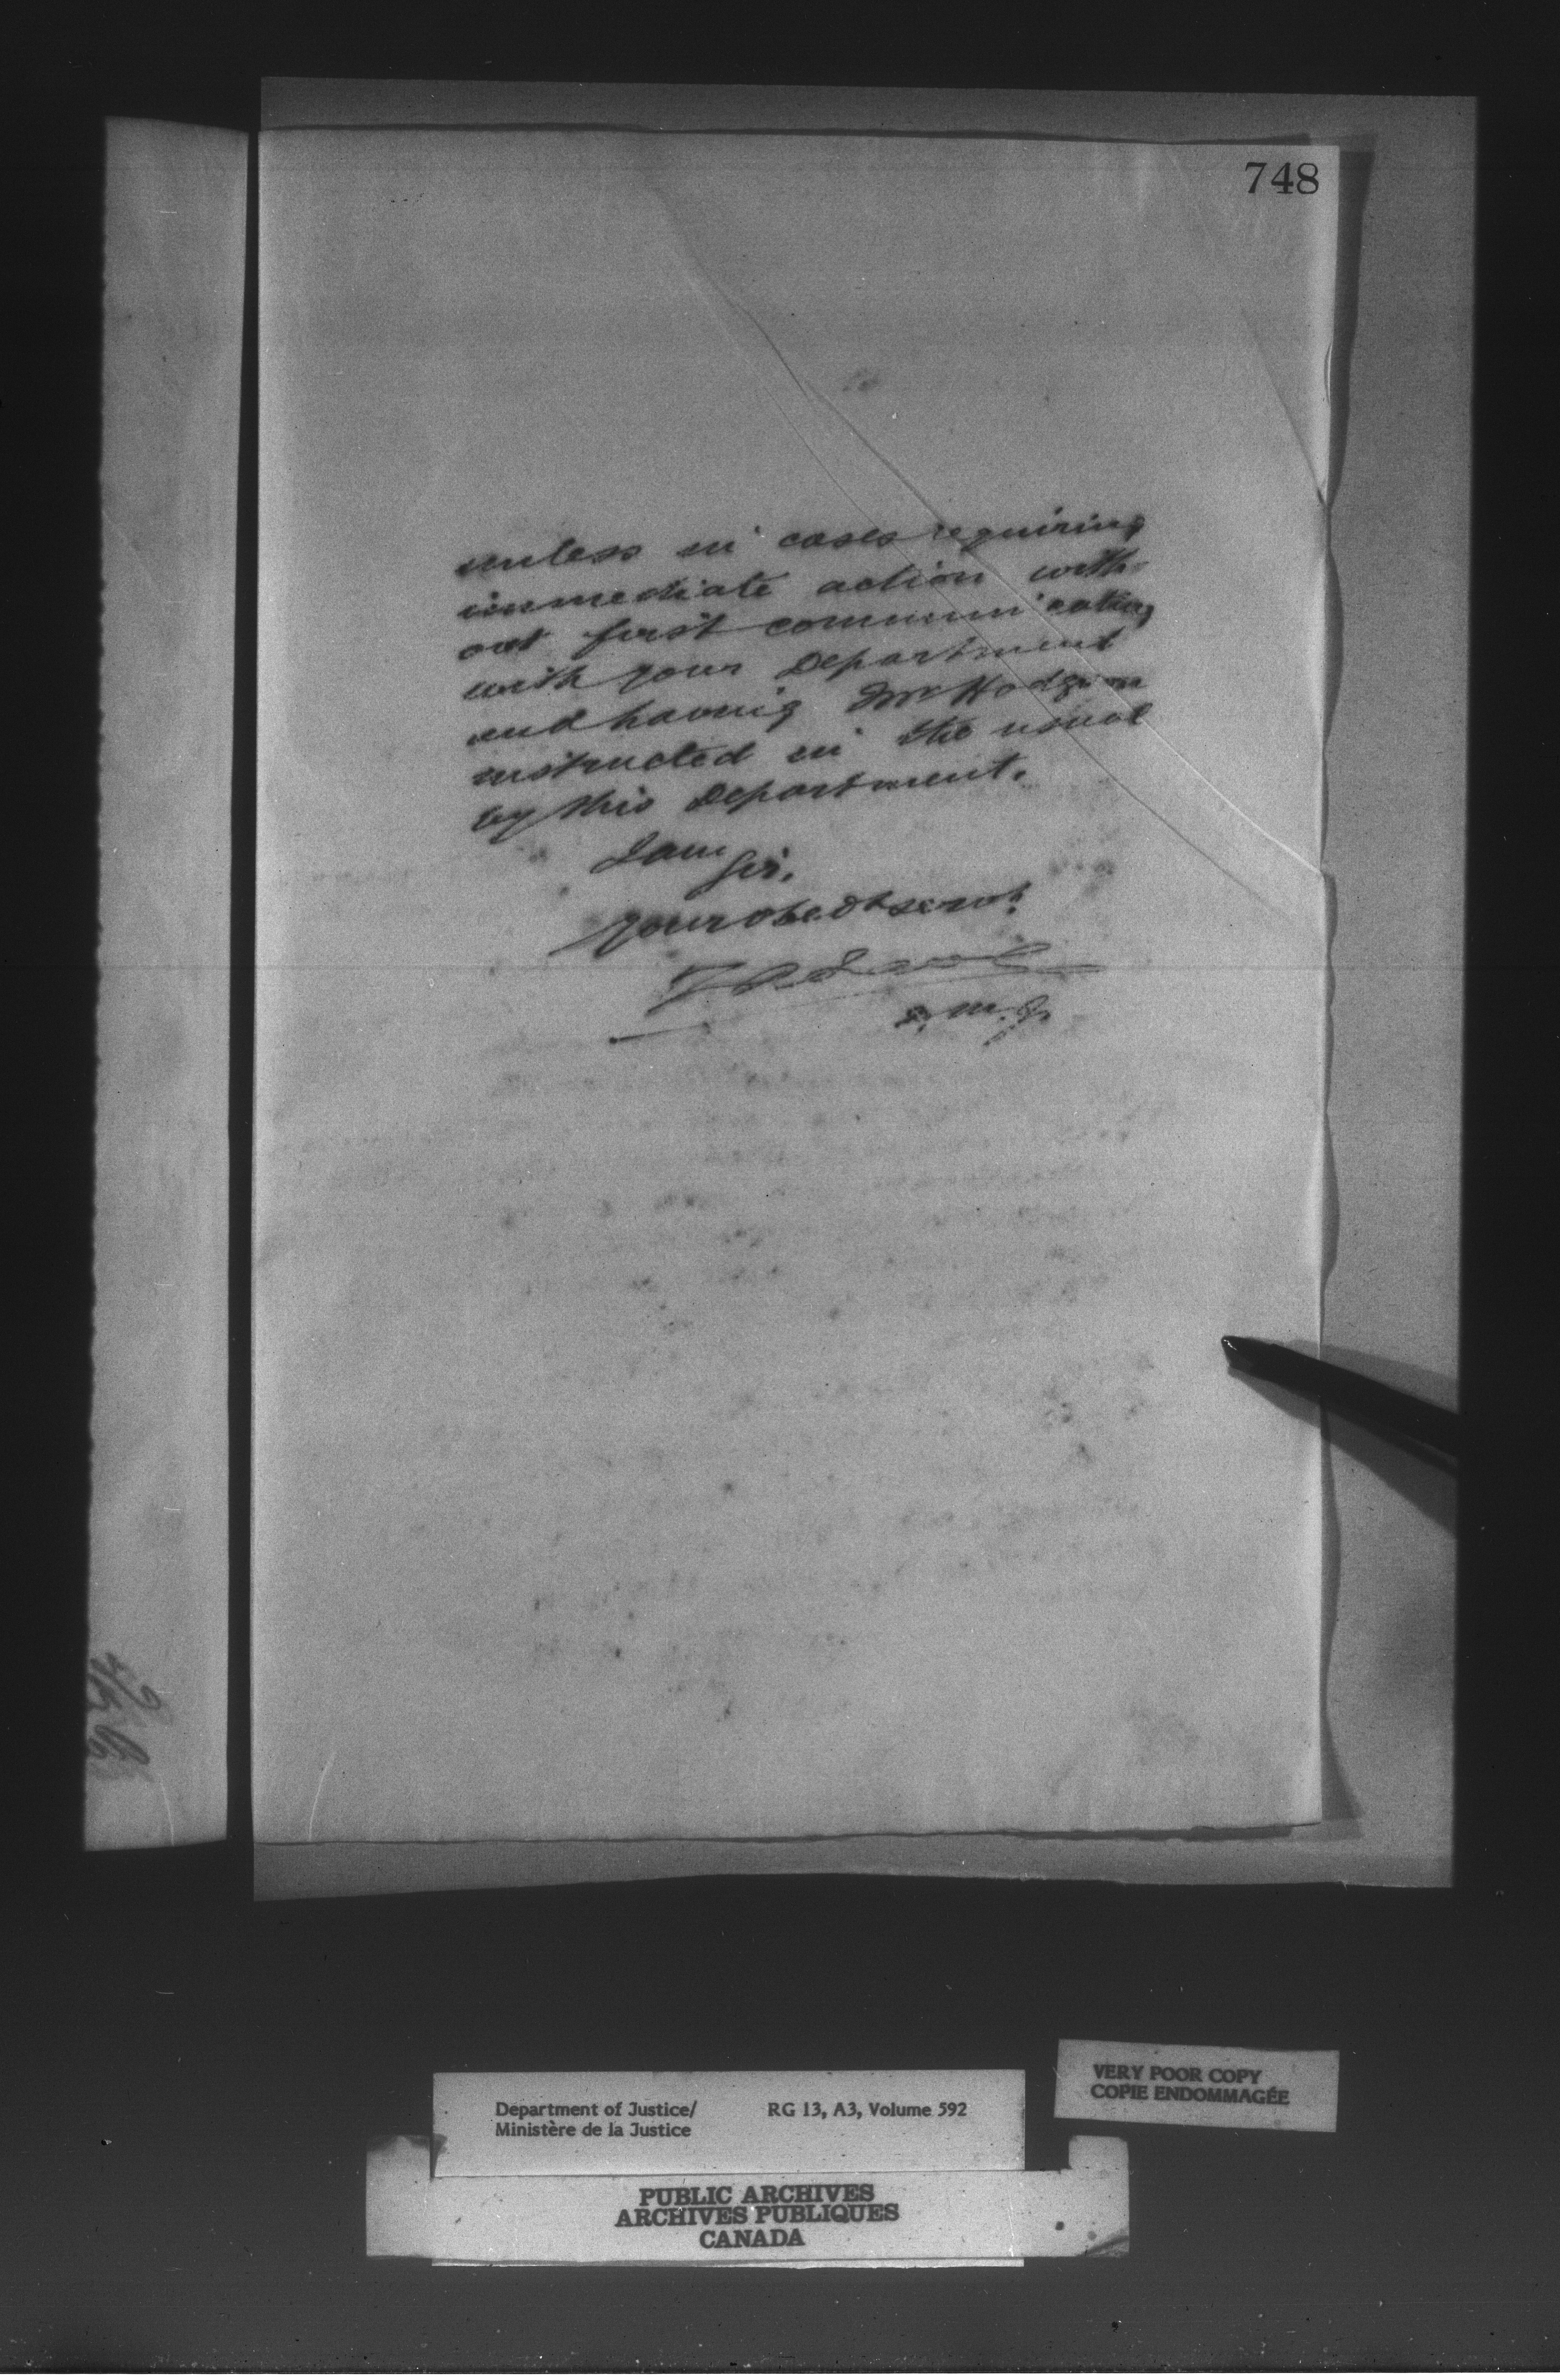 748
unless in cases requiring
immediate action with-
out first communicating
with your Department
and having Mr Hodgson
instructed in the usual
by this Department.
I am
Sir,
your obedt servt
D. M. J.
VERY POOR COPY
COPIE ENDOMMAGÉE
Department of Justice/ RG 13, A3, Volume 592
Ministère de la Justice
PUBLIC ARCHIVES
ARCHIVES PUBLIQUES
CANADA